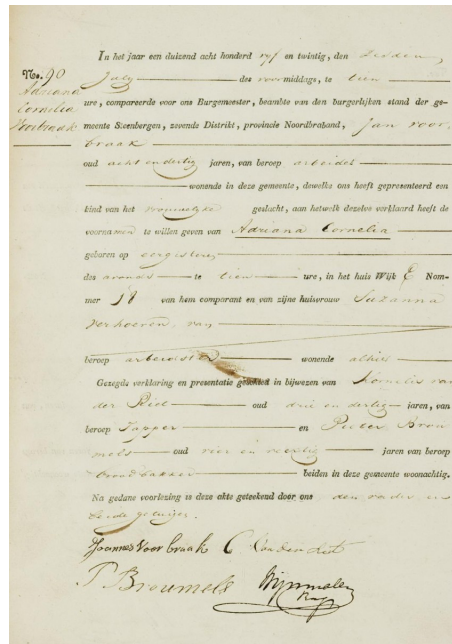 No. 90
Adriana
Cornelia
Voorbraak
In het jaar een duizend acht honderd vyf en twintig, den
July des voormiddags, te tien
ure, compareerde voor ons Burgemeester, beambte van den burgerlijken stand der ge-
meente Steenbergen, zevende Distrikt, provincie Noordbraband, Jan voor-
braak
oud acht en dertig jaren, van beroep arbeider
wonende in deze gemeente, dewelke ons heeft gepresenteerd een
kind van het vrouwelyke geslacht, aan hetwelk dezelve verklaard heeft de
voornamen te willen geven van Adriana Cornelia
geboren op eergisteren
des avonds te tien ure, in het huis Wijk E Nom-
mer 18 van hem comparant en van zijne huisvrouw Suzanna
Verhoeven, van
beroep arbeidster wonende alhier
Gezegde verklaring en presentatie geschied in bijwezen van Kornelis van
der Riet oud drie en dertig jaren, van
beroep Tapper en Pieter Brou-
mels oud vier en veertig jaren van beroep
broodbakker beiden in deze gemeente woonachtig.
Na gedane voorlezing is deze akte geteekend door ons den vader en
beide getuigen.
Joannes Voorbraak C. van der Riet
P Broumels